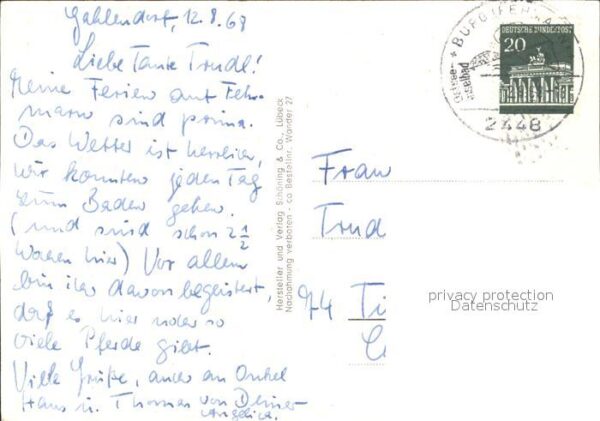 Gahlendorf, 12.8.69
Liebe Tante Trudl!
Meine Ferien auf Feh-
marn sind prima.
Das Wetter ist herrlich,
wir konnten jeden Tag
zum Baden gehen.
(und sind schon 2 1/2
Wochen hier) Vor allem
bin ich davon begeistert,
daß es hier so
viele Pferde gibt.
Viele Grüße, auch an Onkel
Hans u. Thomas von Deiner
Angelica.
Hersteller und Verlag Schöning & Co., Lübeck
Nachahmung verboten - co Bestellnr. Wander 27
DEUTSCHE BUNDESPOST
20
BURG (FEHMARN)
Ostsee-
heilbad
2448
Frau
Trud
74 Ti
privacy protection
Datenschutz